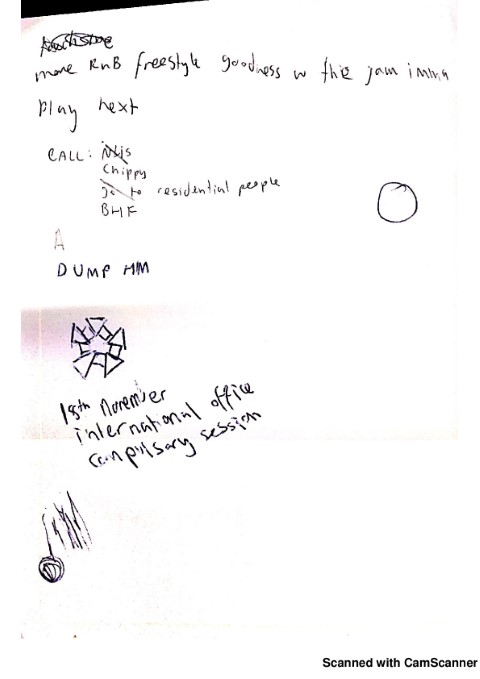 more RnB freestyle goodness w this jam imma
play next
CALL: Nijs
Chippy
go to residential people
BHF
A
DUMP HM
18th November
international office
compulsary session
Scanned with CamScanner